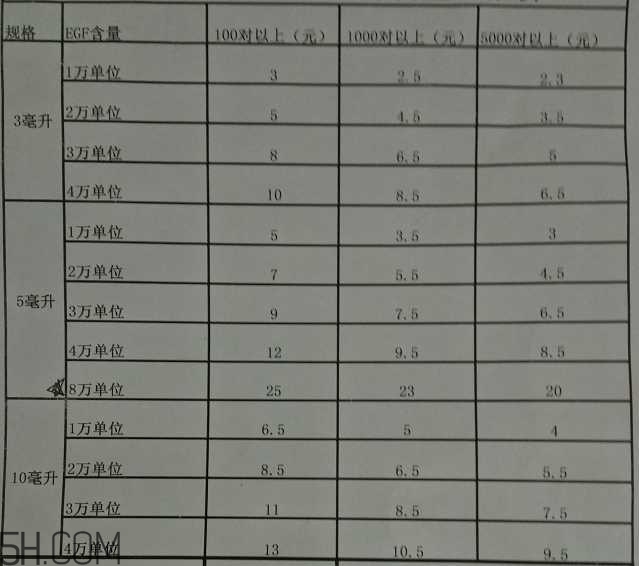 规格 EGF含量 100对以上（元） 1000对以上（元） 5000对以上（元）
3毫升
1万单位 3 2.5 2.3
2万单位 5 4.5 3.5
3万单位 8 6.5 5
4万单位 10 8.5 6.5
5毫升
1万单位 5 3.5 3
2万单位 7 5.5 4.5
3万单位 9 7.5 6.5
4万单位 12 9.5 8.5
8万单位 25 23 20
10毫升
1万单位 6.5 5 4
2万单位 8.5 6.5 5.5
3万单位 11 8.5 7.5
4万单位 13 10.5 9.5
5H.COM